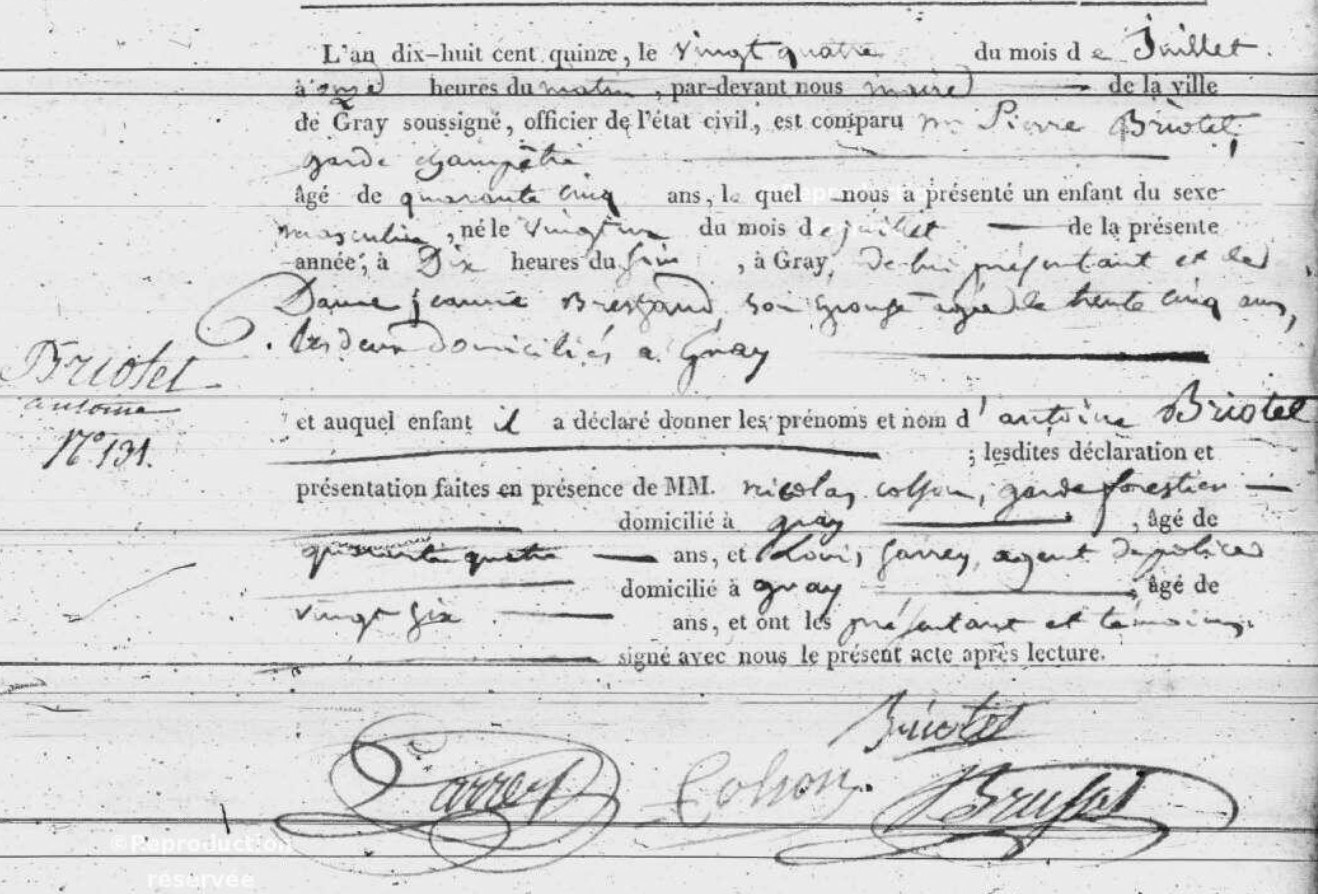 L'an dix-huit cent quinze, le vingt quatre du mois de Juillet.
à onze heures du matin, par-devant nous maire de la ville
de Gray soussigné, officier de l'état civil, est comparu mr Pierre Briotet,
garde champêtre
âgé de quarante cinq ans, lequel nous a présenté un enfant du sexe
masculin, né le vingt du mois de juillet de la présente
année, à Dix heures du soir, à Gray, de lui présentant et de
Dame jeanne son épouse agée de trente cinq ans,
les deux domiciliés a Gray
Briotet
antoine
N° 131.
et auquel enfant il a déclaré donner les prénoms et nom d'antoine Briotet
; lesdites déclaration et
présentation faites en présence de MM. nicolas colson, garde forestier
domicilié à gray, âgé de
quarante quatre ans, et Louis garrey, agent de police
domicilié à gray, âgé de
vingt six ans, et ont les présentant et témoins
signé avec nous le présent acte après lecture.
Briotet
Garrey Colson
©Reproduction
réservée